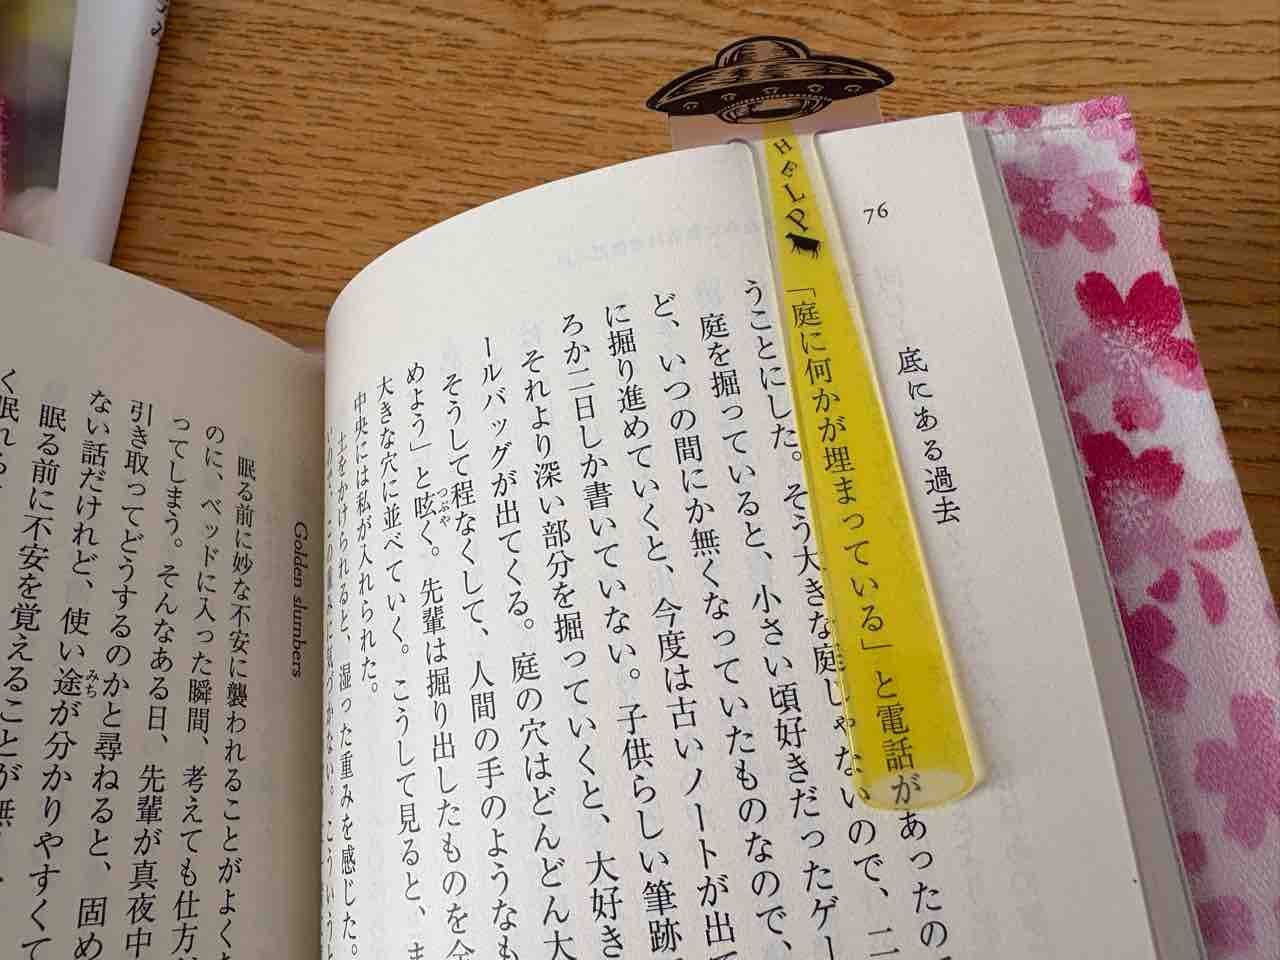 HeLP
76
底にある過去
「庭に何かが埋まっている」と電話があったの
うことにした。そう大きな庭じゃないので、二
庭を掘っていると、小さい頃好きだったゲー
ど、いつの間にか無くなっていたものなので、
に掘り進めていくと、今度は古いノートが出て
ろか二日しか書いていない。子供らしい筆跡
それより深い部分を掘っていくと、大好き
ールバッグが出てくる。庭の穴はどんどん大
そうして程なくして、人間の手のようなも
めよう」と呟く。先輩は掘り出したものを全
つぶや
大きな穴に並べていく。こうして見ると、ま
中央には私が入れられた。
土をかけられると、湿った重みを感じた。
Golden slumbers
眠る前に妙な不安に襲われることがよく
のに、ベッドに入った瞬間、考えても仕方
ってしまう。そんなある日、先輩が真夜中
引き取ってどうするのかと尋ねると、固め
ない話だけれど、使い途が分かりやすくて
みち
眠る前に不安を覚えることが無
く眠れ